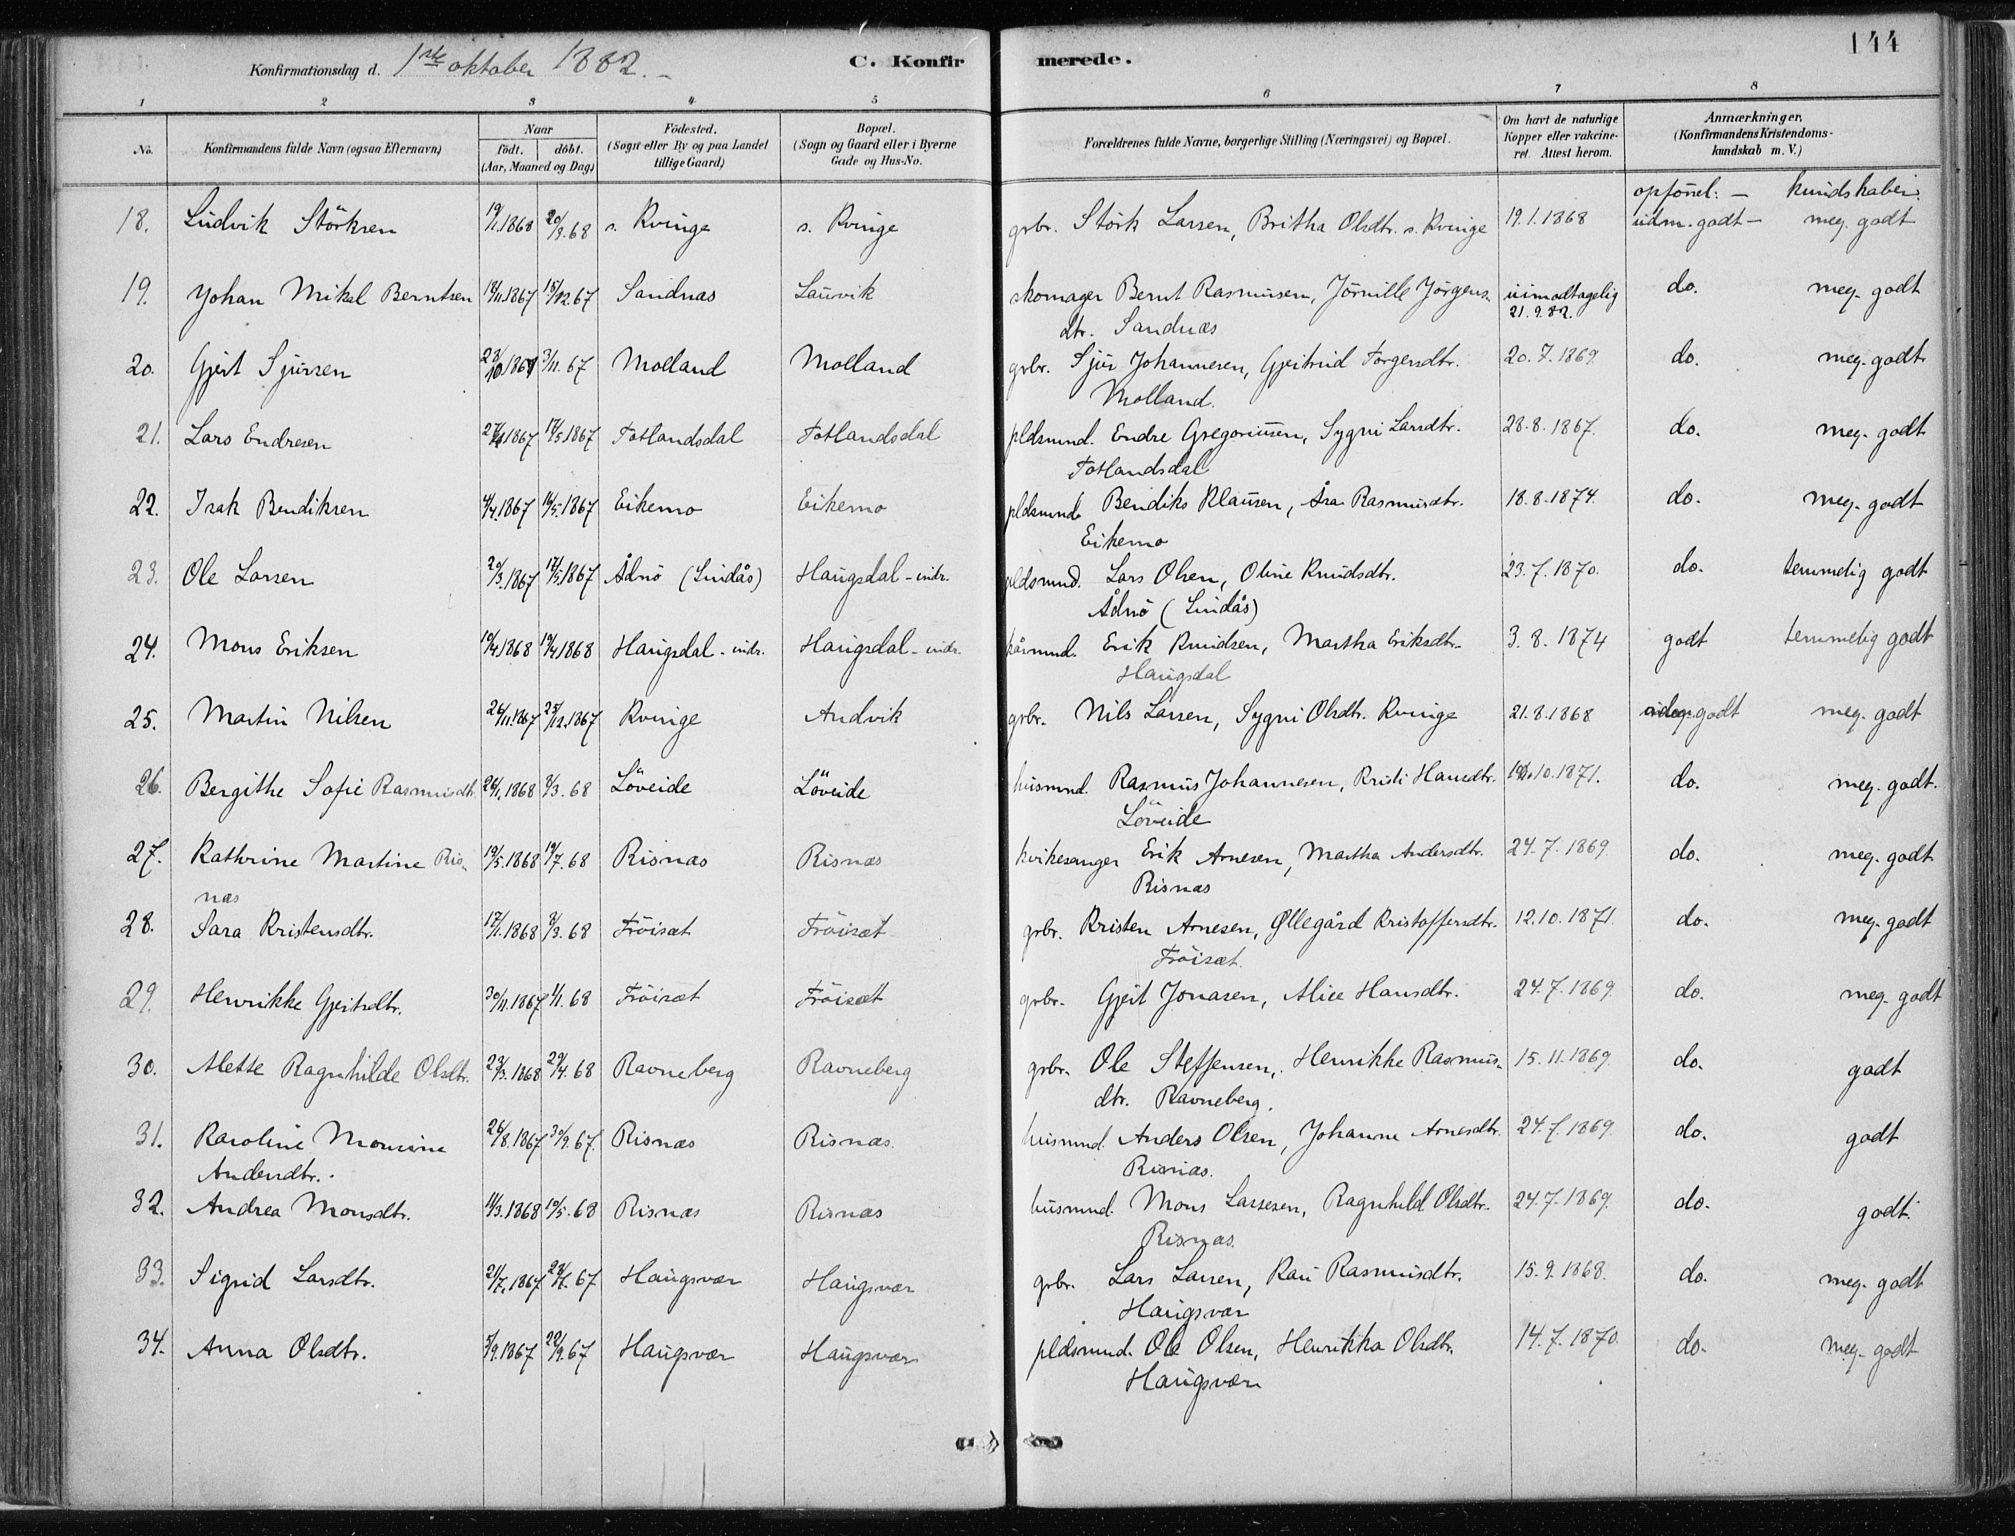 144
Konfirmationsdag d. 1ste oktober 1882. C. Konfirmerede.
1 2 3 4 5 6 7 8
No. Konfirmandens fulde Navn (ogsaa Efternavn) Naar födt. döbt. (Aar, Maaned og Dag) Födested. (Sogn eller By og paa Landet tillige Gaard) Bopæl. (Sogn og Gaard eller i Byerne Gade og Hus-No. Forældrenes fulde Navne, borgerlige Stilling (Næringsvei) og Bopæl. Om havt de naturlige Kopper eller vakcineret. Attest herom. Anmærkninger. (Konfirmandens Kristendomskundskab m. V.)
opførsel: — kundskaber:
18. Ludvik Störksen 19/1.1868 20/3.68 s. Kvinge s. Kvinge grbr. Störk Larsen, Britha Olsdtr. s. Kvinge 19.1.1868 udm. godt — meg. godt
19. Johan Mikal Berntsen 18/11.1867 15/12.67 Sandnæs Lauvik skomager Bernt Rasmusen, Jörnille Jörgens- uimodtagelig do. meg. godt
dtr. Sandnæs 21.9.82.
20. Gjert Sjursen 23/10 1867 3/11.67 Molland Molland grbr. Sjur Johannesen, Gjertrud Torgersdtr. 20.7.1869. do. meg. godt
Molland.
21. Lars Endresen 27/4 1867 17/5.1867 Totlandsdal Totlandsdal pldsmnd. Endre Gregoriusen, Sygni Larsdtr. 28.8.1867. do. meg. godt
Totlandsdal
22. Isak Bendiksen 4/4.1867 16/5.1867 Eikemo Eikemo pldsmnd. Bendiks Klausen, Åsa Rasmusdtr. 18.8.1874. do. meg. godt
Eikemo
23. Ole Larsen 20/3.1867 17/5.1867 Ådnö (Lindås) Haugsdal - indr. pldsmnd. Lars Olsen, Oline Knudsdtr. 23.7.1870. do. temmelig godt
Ådnö (Lindås)
24. Mons Eriksen 10/4.1868 19/4.1868 Haugsdal - indr. Haugsdal - indr. kårmnd. Erik Knudsen, Martha Eriksdtr. 3.8.1874 godt temmelig godt
Haugsdal
25. Martin Nilsen 26/11.1867 25/12.1867 Kvinge Andvik grbr. Nils Larsen, Sygni Olsdtr. Kvinge 21.8.1868 godt meg. godt
26. Bergithe Sofie Rasmusdtr. 26/1.1868 8/3.68 Löveide Löveide husmnd. Rasmus Johannesen, Kristi Hansdtr. 10.1871. do. meg. godt.
Löveide
27. Kathrine Martine Ris- 19/5.1868 19/7.68 Risnæs Risnæs kirkesanger Erik Arnesen, Martha Andersdtr. 24.7.1869 do. meg. godt
næs Risnæs
28. Sara Kristensdtr. 17/1.1868 8/3.68 Fröiset Fröiset grbr. Kristen Arnesen, Øllegård Kristoffersdtr. 12.10.1871. do. meg. godt
Fröiset.
29. Henrikke Gjertsdtr. 30/11.1867 1/1.68 Fröiset Fröiset grbr. Gjert Jonasen, Alice Hansdtr. 24.7.1869. do. meg. godt
30. Mette Ragnhilde Olsdtr. 23/3.1868 29/4.68 Ravneberg Ravneberg grbr. Ole Steffensen, Henrikke Rasmus- 15.11.1869. do. godt
dtr. Ravneberg.
31. Karoline Monsine 26/8.1867 30/9.67. Risnæs Risnæs. husmnd. Anders Olsen, Johanne Arnesdtr. 24.7.1869. do. godt
Andersdtr. Risnæs.
32. Andrea Monsdtr. 11/3.1868 10/5.68 Risnæs Risnæs husmnd. Mons Larsesen, Ragnhild Olsdtr. 24.7.1869. do. godt.
Risnæs.
33. Sigrid Larsdtr. 21/7.1867 28/7.67 Haugsvær Haugsvær grbr. Lars Larsen, Kari Rasmusdtr. 15.9.1868. do. meg. godt
Haugsvær
34. Anna Olsdtr. 5/9.1867 22/9.67 Haugsvær Haugsvær pldsmnd. Ole Olsen, Henrikka Olsdtr. 14.7.1870. do. meg. godt
Haugsvær